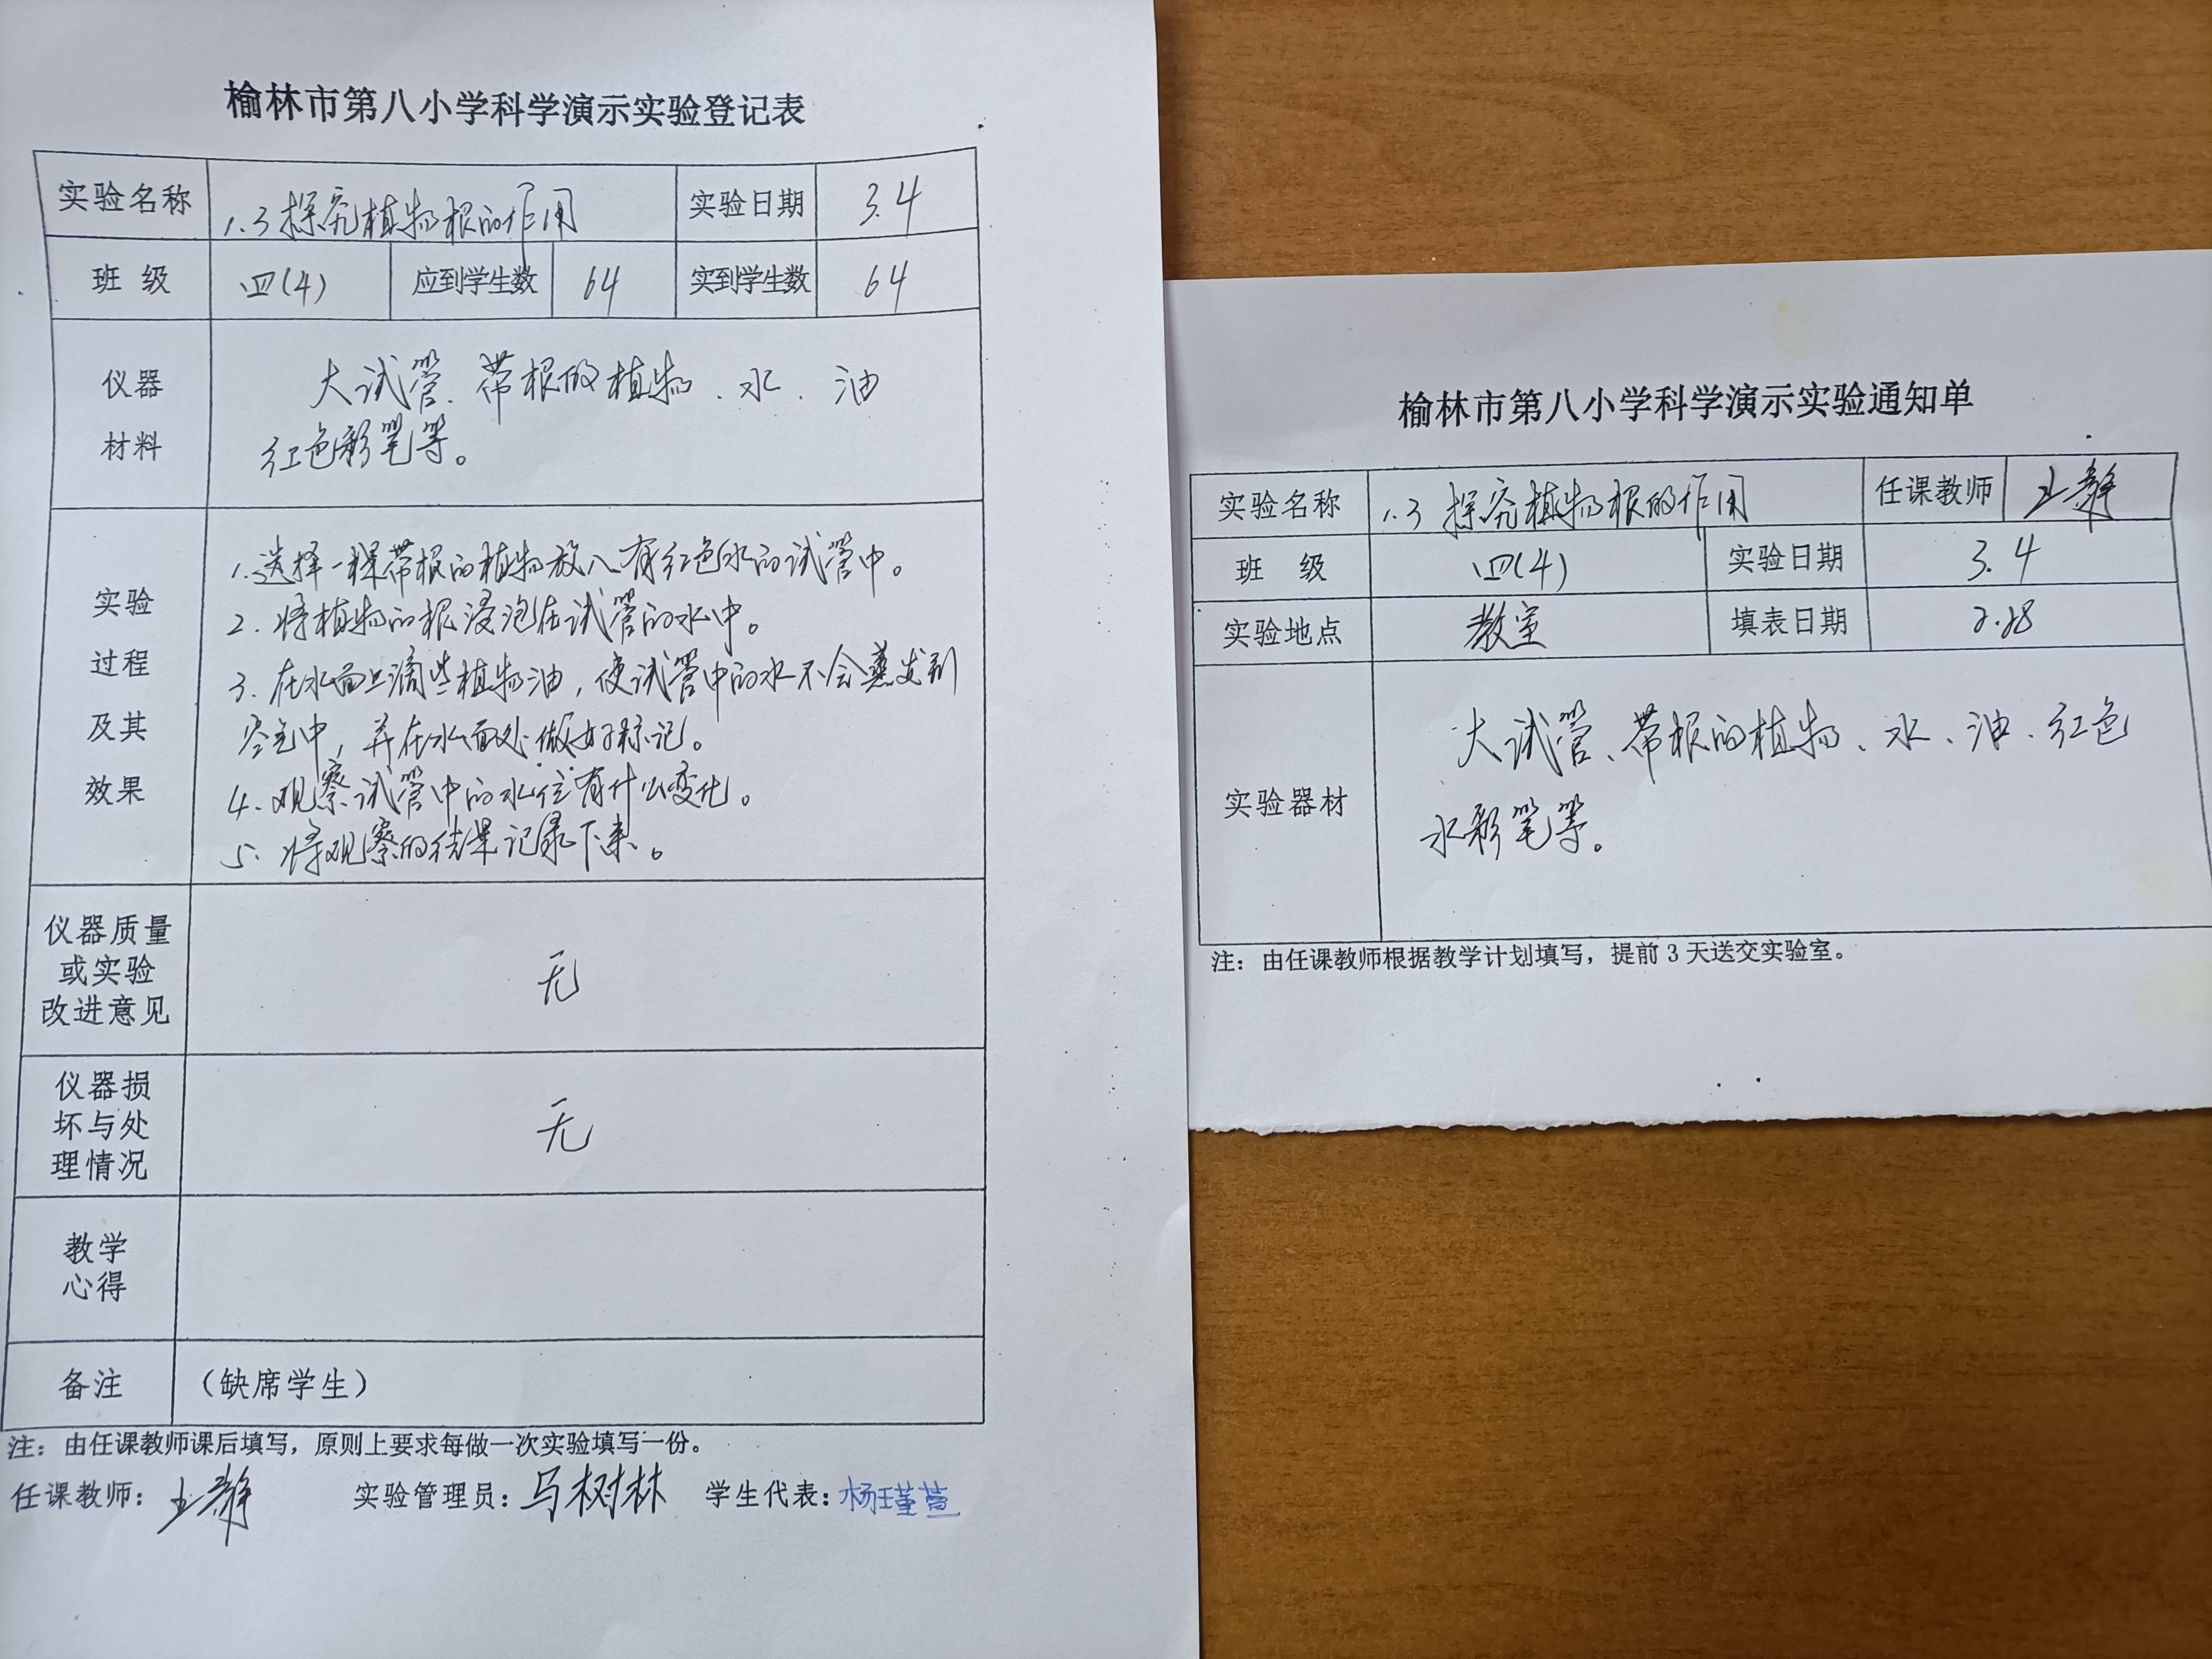 榆林市第八小学科学演示实验登记表
实验名称 1.3 探究植物根的作用 实验日期 3.4
班 级 四(4) 应到学生数 64 实到学生数 64
仪器
材料
大试管、带根的植物、水、油
红色彩笔等。
实验
过程
及其
效果
1.选择一棵带根的植物放入有红色水的试管中。
2.将植物的根浸泡在试管的水中。
3.在水面上滴些植物油,使试管中的水不会蒸发到
空气中,并在水面处做好标记。
4.观察试管中的水位有什么变化。
5.将观察的结果记录下来。
仪器质量
或实验
改进意见
无
仪器损
坏与处
理情况
无
教学
心得
备注 (缺席学生)
注:由任课教师课后填写,原则上要求每做一次实验填写一份。
任课教师: 王静 实验管理员: 马树林 学生代表: 杨瑾萱
榆林市第八小学科学演示实验通知单
实验名称 1.3 探究植物根的作用 任课教师 王静
班 级 四(4) 实验日期 3.4
实验地点 教室 填表日期 2.28
实验器材
大试管、带根的植物、水、油、红色
水彩笔等。
注:由任课教师根据教学计划填写,提前3天送交实验室。